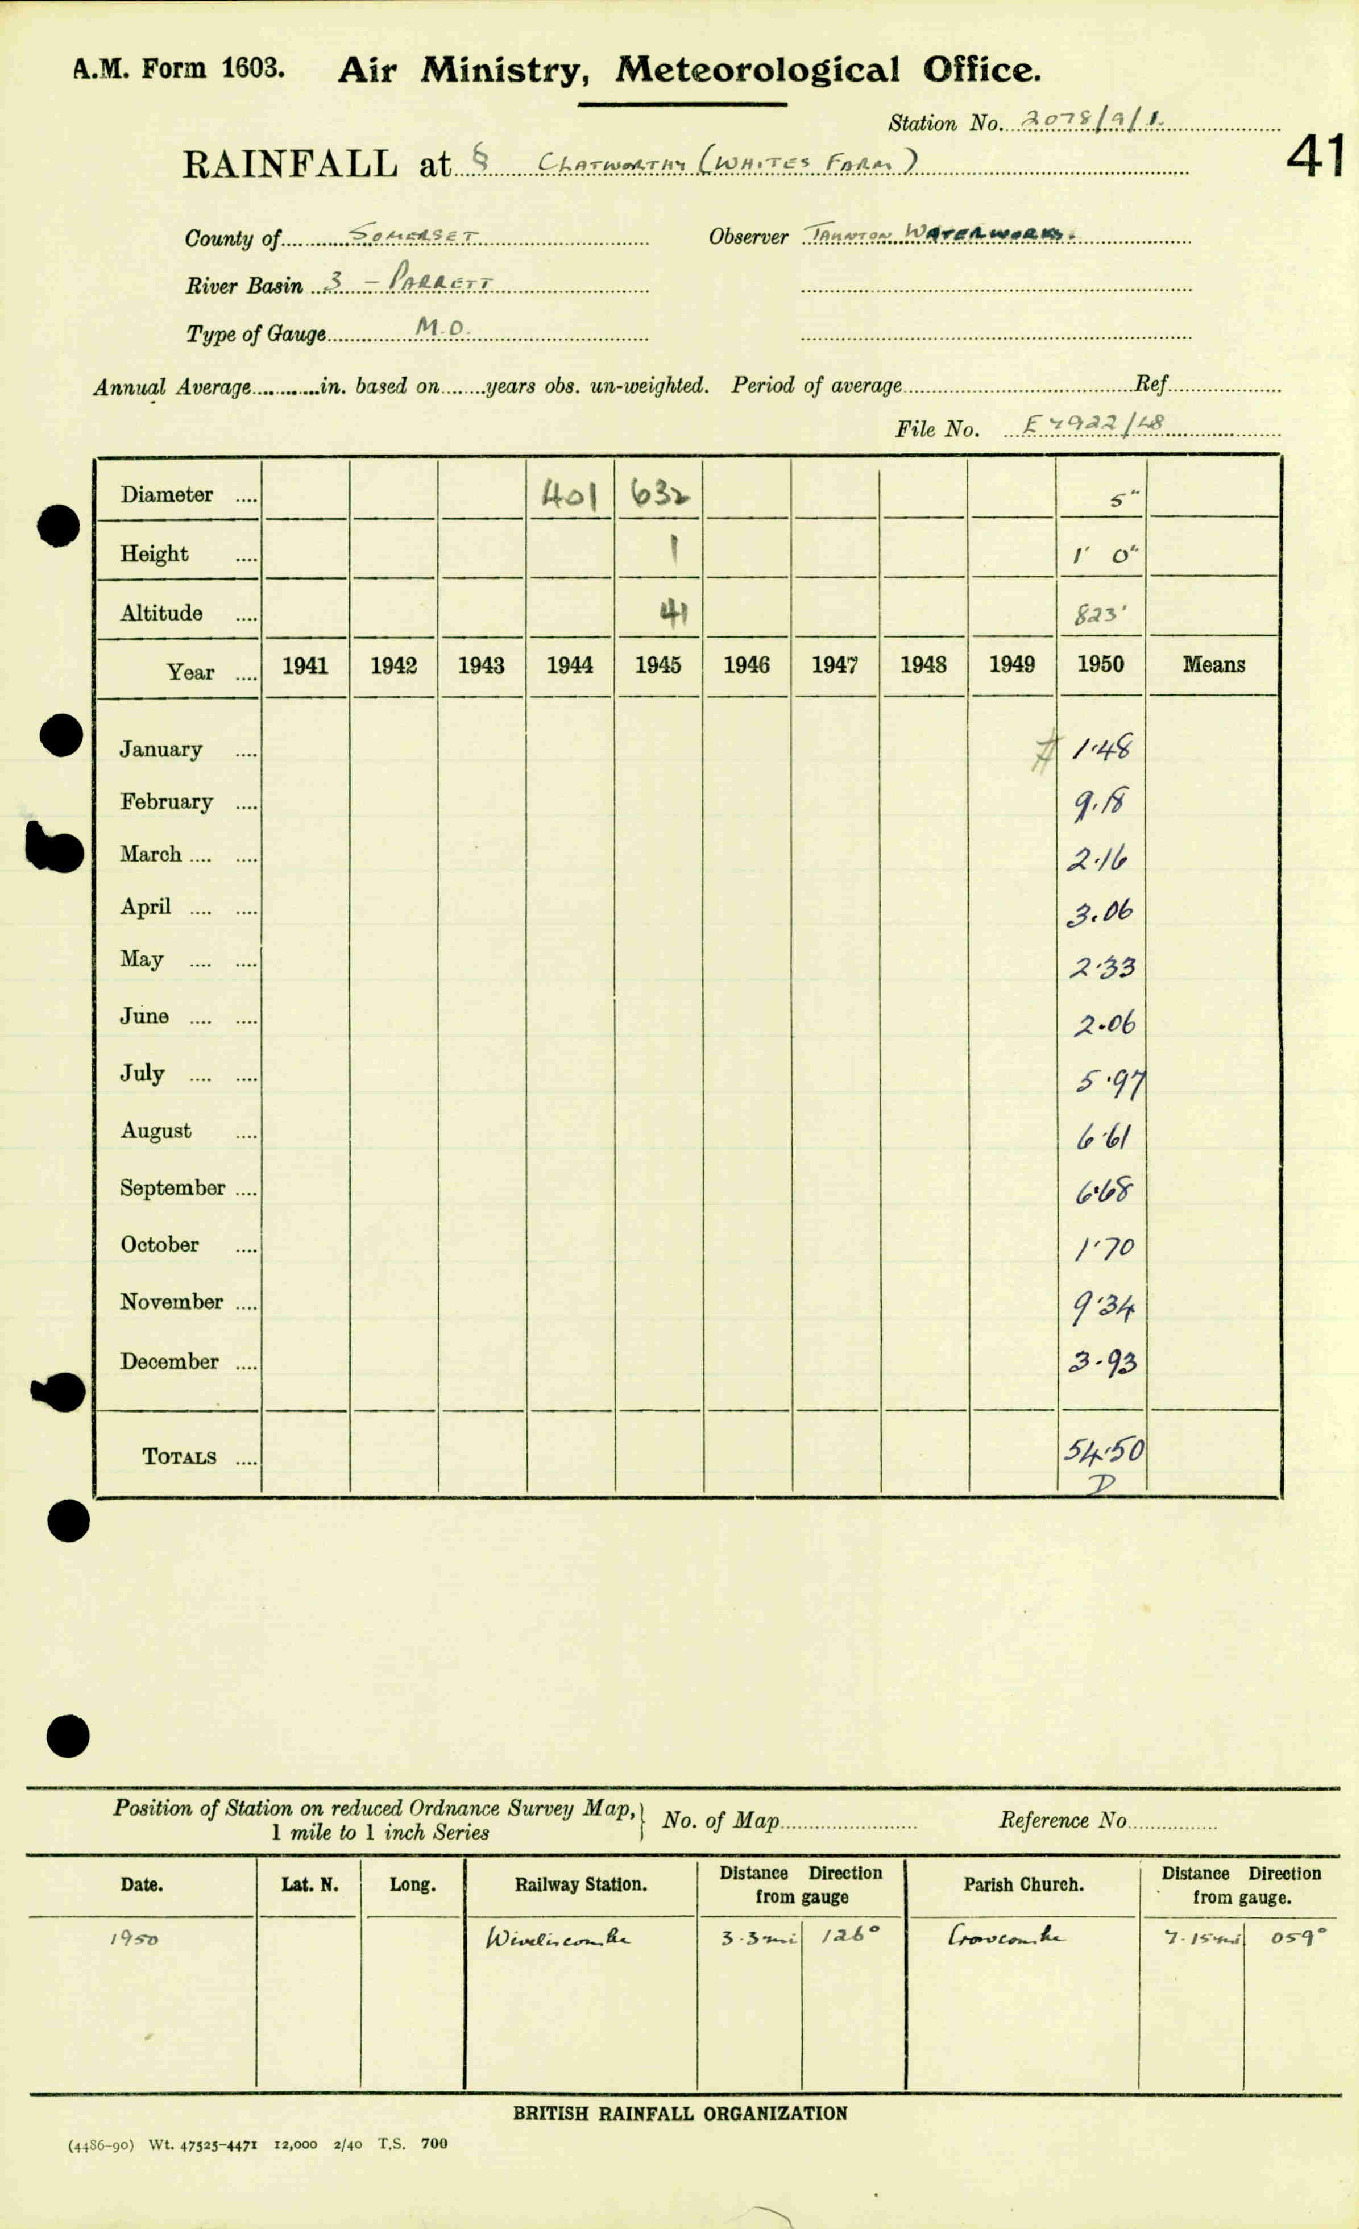 A.M. Form 1603. Air Ministry, Meteorological Office.
Station No. 2078/9/1.
41
RAINFALL at § CLATWORTHY (WHITES FARM)
County of SOMERSET Observer TAUNTON WATERWORKS.
River Basin 3 - PARRETT
Type of Gauge M.O.
Annual Average in. based on years obs. un-weighted. Period of average Ref
File No. E 7922/48
Diameter 401 632 5"
Height 1 1' 0"
Altitude 41 823'
Year 1941 1942 1943 1944 1945 1946 1947 1948 1949 1950 Means
January 1.48
February 9.18
March 2.16
April 3.06
May 2.33
June 2.06
July 5.97
August 6.61
September 6.68
October 1.70
November 9.34
December 3.93
TOTALS 54.50
D
Position of Station on reduced Ordnance Survey Map, 1 mile to 1 inch Series } No. of Map Reference No
Date. Lat. N. Long. Railway Station. Distance Direction from gauge Parish Church. Distance Direction from gauge.
1950 Wiveliscombe 3.3 mi 126° Crowcombe 7.15 mi 059°
BRITISH RAINFALL ORGANIZATION
(4486-90) Wt. 47525-4471 12,000 2/40 T.S. 700